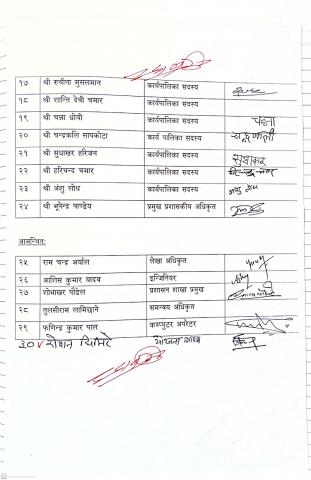 १७ श्री रुबीना मुसलमान कार्यपालिका सदस्य
१८ श्री शान्ति देवी चमार कार्यपालिका सदस्य
१९ श्री चन्ना धोवी कार्यपालिका सदस्य
२० श्री चन्द्रकलि सापकोटा कार्य पालिका सदस्य
२१ श्री सुधाखर हरिजन कार्यपालिका सदस्य सुधाकर
२२ श्री हरिचन्द चमार कार्यपालिका सदस्य
२३ श्री अंशु लोध्र कार्यपालिका सदस्य
२४ श्री भूपेन्द्र पाण्डेय प्रमुख प्रशासकीय अधिकृत
आमन्त्रित:
२५ राम चन्द्र अर्याल लेखा अधिकृत
२६ आशिस कुमार यादव इन्जिनियर
२७ शोभाखर पौडेल प्रशासन शाखा प्रमुख
२८ तुलसीराम लामिछाने समन्वय अधिकृत
२९ फणिन्द्र कुमार पाल कम्प्युटर अपरेटर
३० रोशन घिमिरे योजना शाखा